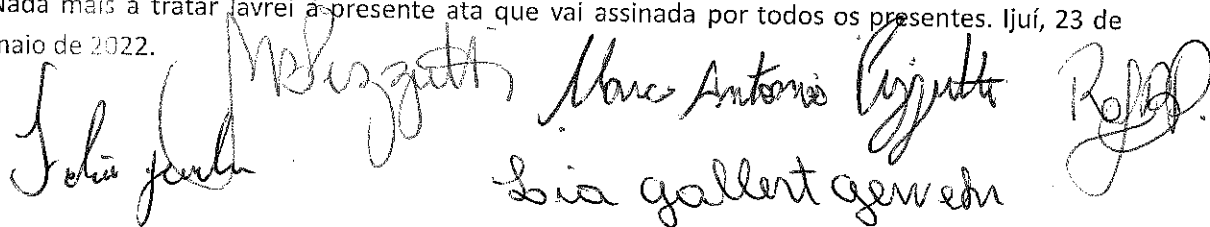 Nada mais a tratar lavrei a presente ata que vai assinada por todos os presentes. Ijuí, 23 de
maio de 2022.
Pizzutti Marco Antonio Pizzutti
Lia Gallert Gerwehr